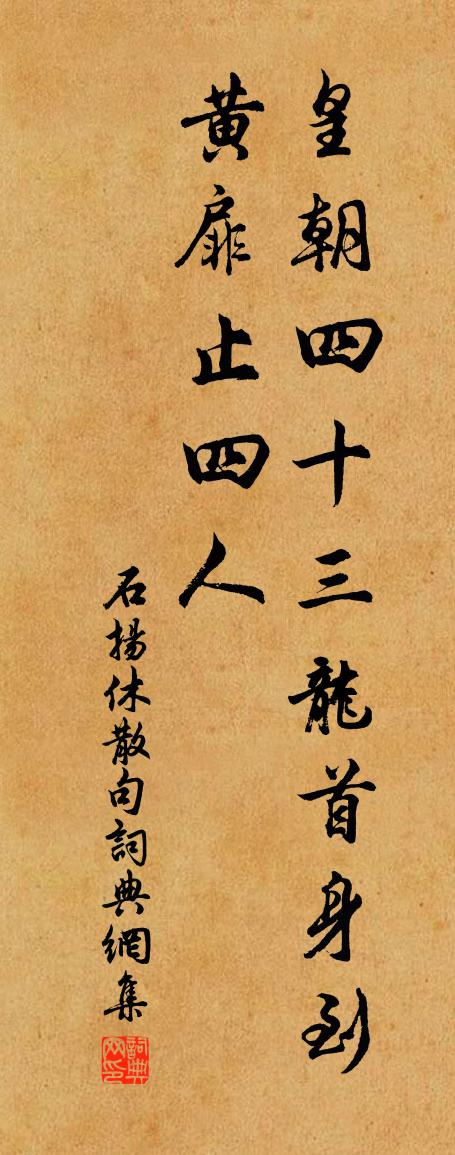 皇朝四十三龍首身到
黄扉止四人
石揚休散句詞典網集
詞典網印